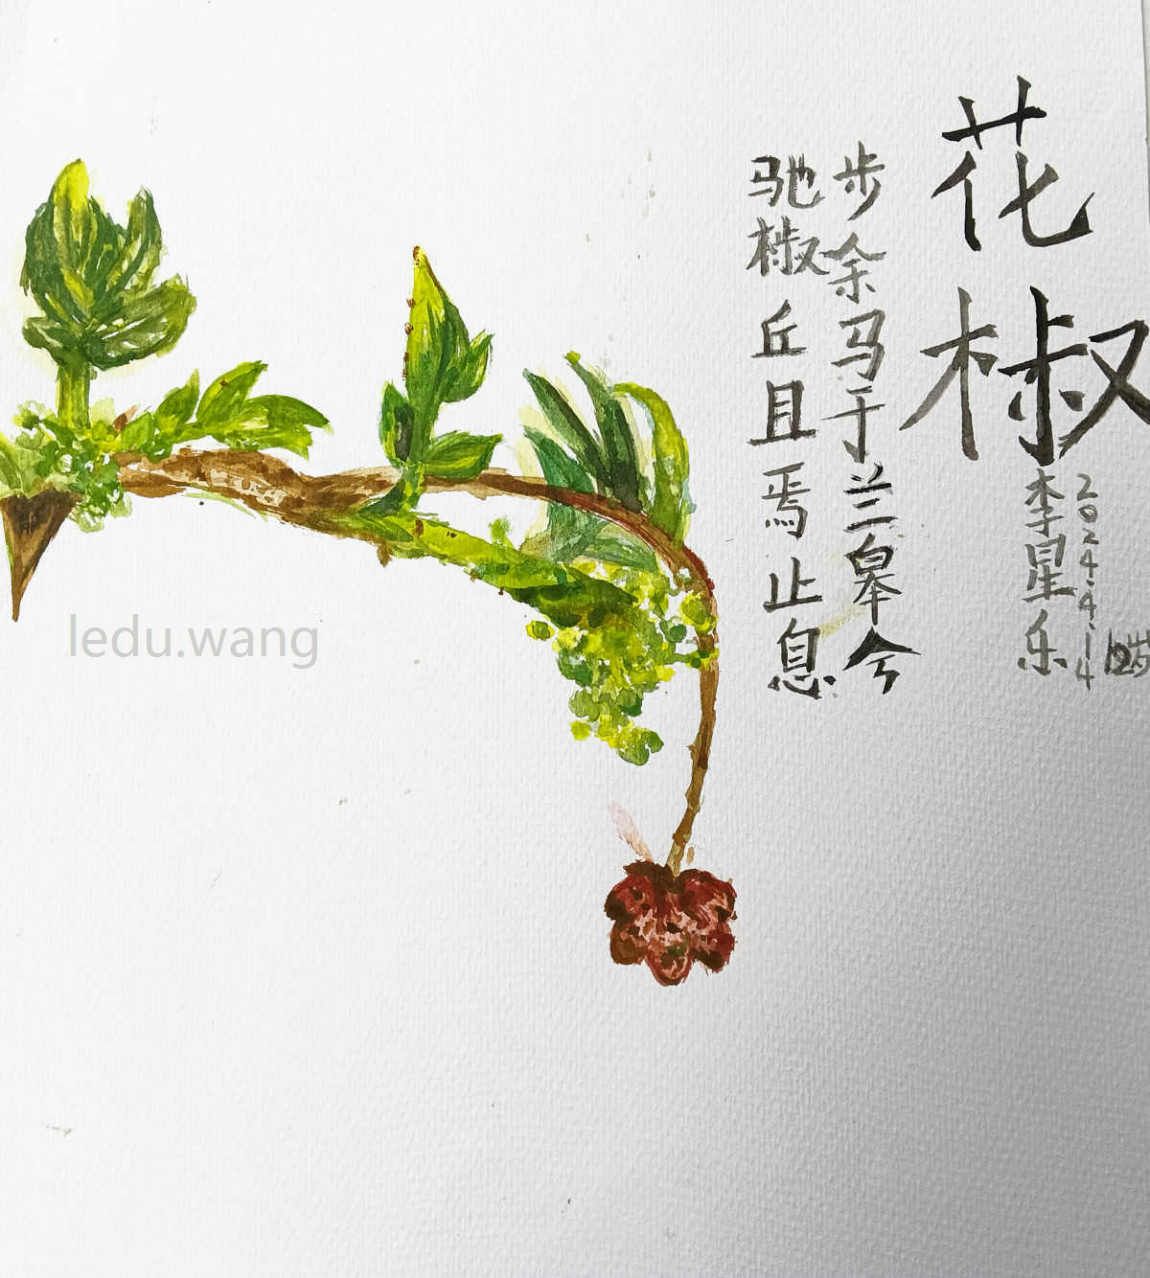 花椒
李星乐
2024.4.14
12岁
步余马于兰皋兮
驰椒丘且焉止息
ledu.wang